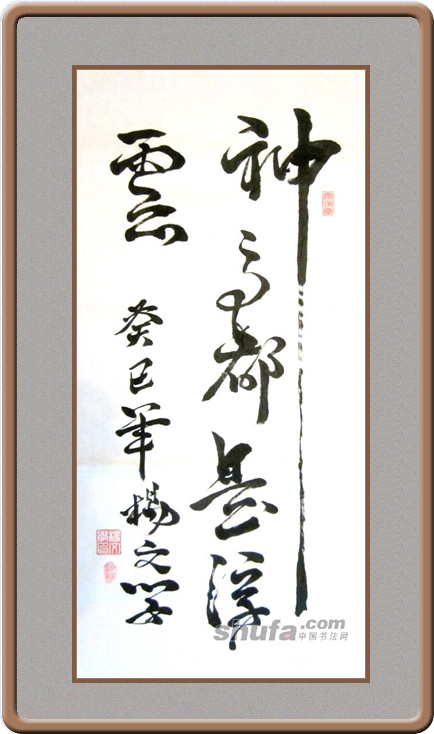 神马都是浮
雲
癸巳年楊文学
shufa.com
中国书法网